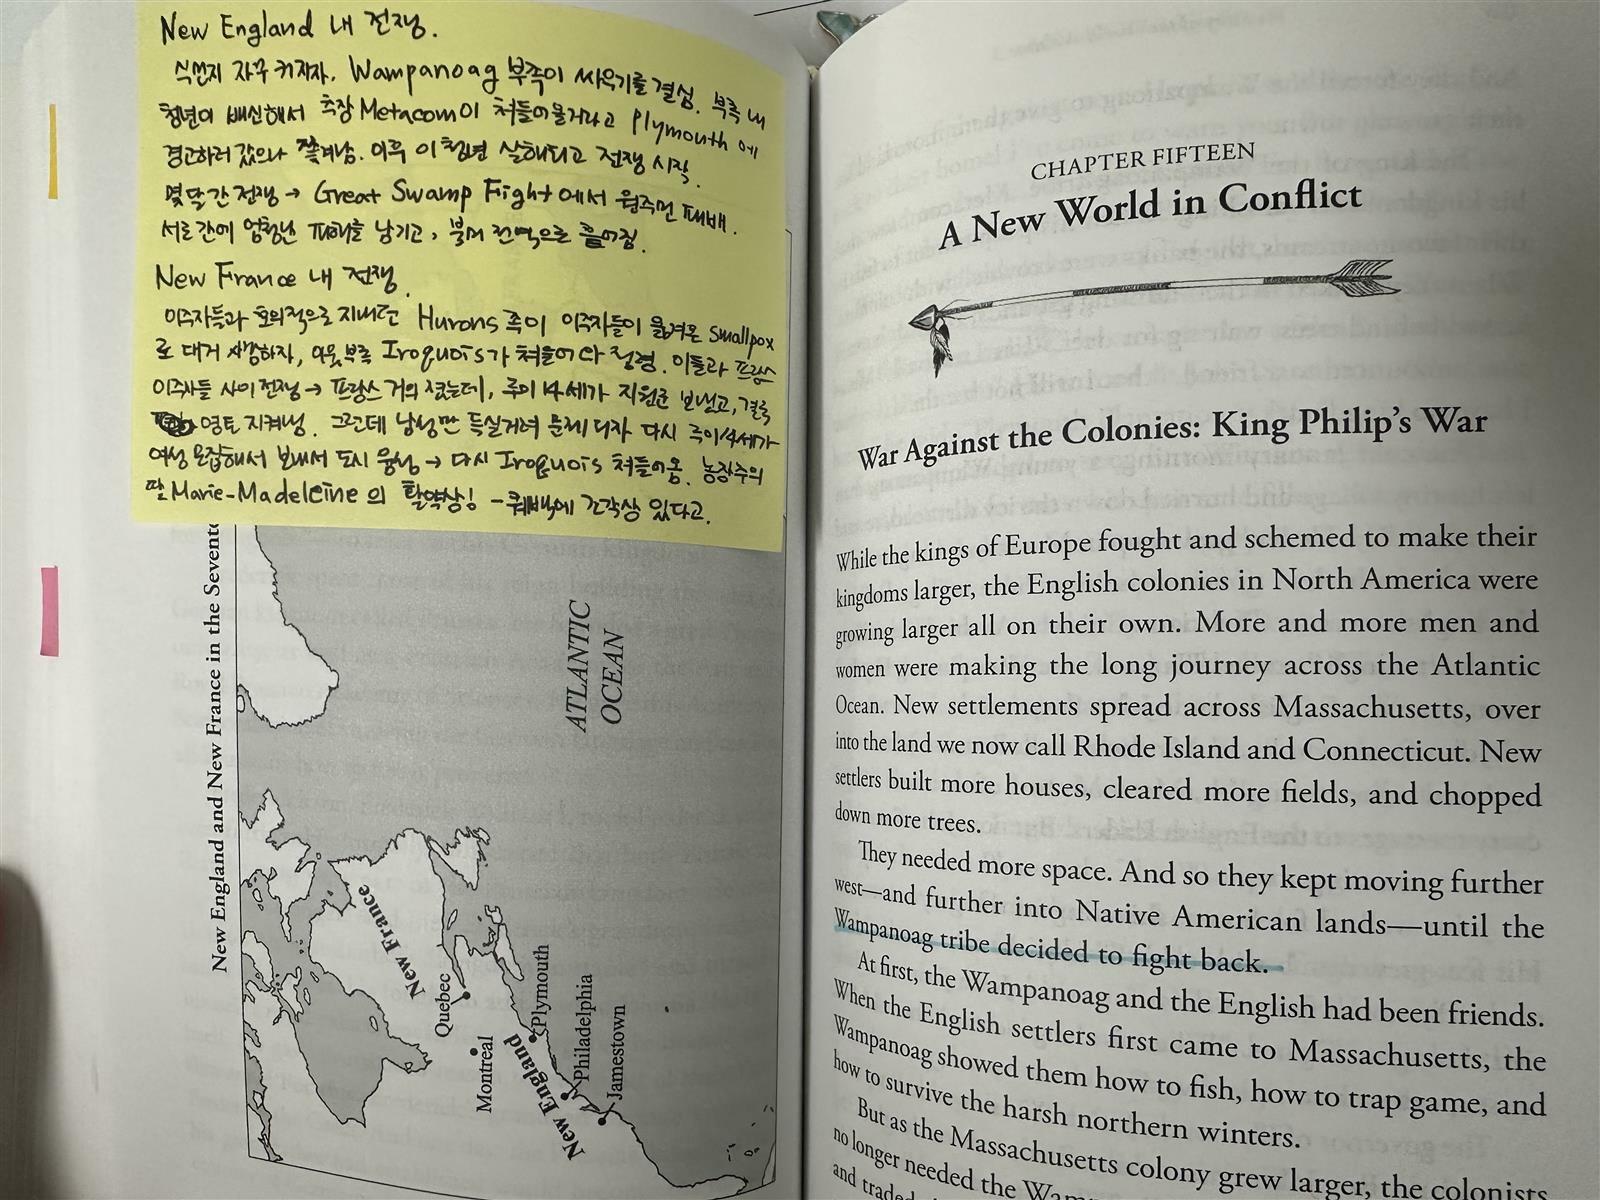 New England 내 전쟁.
식민지 자꾸 커지자, Wampanoag 부족이 싸우기를 결심. 부족 내
청년이 배신해서 추장 Metacom이 쳐들어올거라고 Plymouth에
경고하러 갔으나 쫓겨남. 이후 이 청년 살해되고 전쟁 시작.
몇달간 전쟁 → Great Swamp Fight에서 원주민 패배.
서로간에 엄청난 피해를 남기고, 불어 전역으로 흩어짐.
New France 내 전쟁.
이주자들과 호의적으로 지내던 Hurons 족이 이주자들이 옮겨온 smallpox
로 대거 사망하자, 이웃부족 Iroquois가 쳐들어와 점령. 이들과 프랑스
이주자들 사이 전쟁 → 프랑스 거의 졌는데, 루이 14세가 지원군 보냈고, 결국
영토 지켜냄. 그런데 남성만 득실거려 문제 되자 다시 루이14세가
여성 모집해서 보내서 도시 융성 → 다시 Iroquois 쳐들어옴. 농장주의
딸 Marie-Madeleine의 활약상! - 퀘백에 조각상 있다고.
New England and New France in the Sevente
ATLANTIC
OCEAN
New France
Quebec
Montreal
New England
Plymouth
Philadelphia
Jamestown
CHAPTER FIFTEEN
A New World in Conflict
War Against the Colonies: King Philip's War
While the kings of Europe fought and schemed to make their
kingdoms larger, the English colonies in North America were
growing larger all on their own. More and more men and
women were making the long journey across the Atlantic
Ocean. New settlements spread across Massachusetts, over
into the land we now call Rhode Island and Connecticut. New
settlers built more houses, cleared more fields, and chopped
down more trees.
They needed more space. And so they kept moving further
west—and further into Native American lands—until the
Wampanoag tribe decided to fight back.
At first, the Wampanoag and the English had been friends.
When the English settlers first came to Massachusetts, the
Wampanoag showed them how to fish, how to trap game, and
how to survive the harsh northern winters.
But as the Massachusetts colony grew larger, the colonists
no longer needed the Wam
and traded